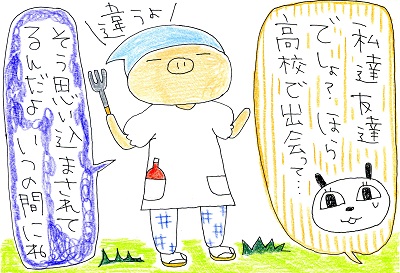 私達友達
でしょ？ほら
高校で出会って…
違うよ
そう思い込まされて
るんだよ いつの間にね